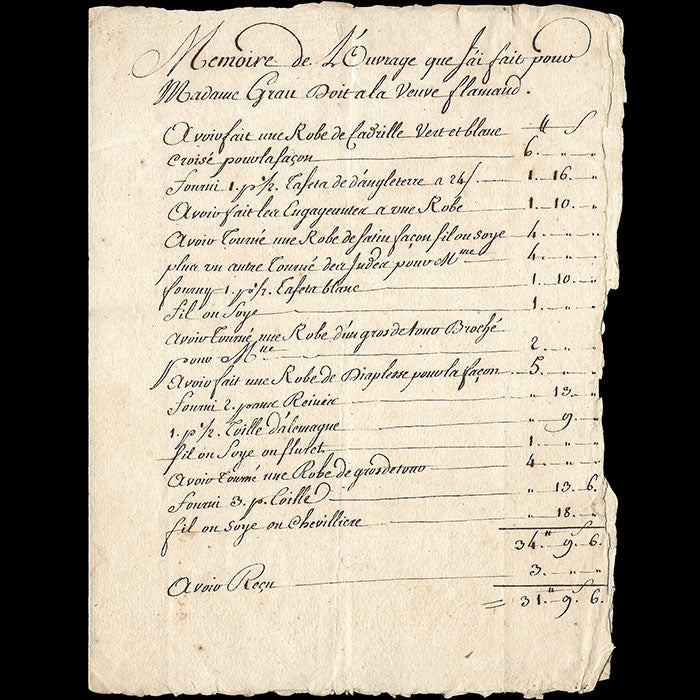 Memoire de L'Ouvrage que J'ai fait pour
Madame Grau Doit a la Veuve flamand.
Avoir fait une Robe de Cadrille Vert et blanc " s
Croisé pour la façon 6. " "
Fourni 1. p. ½. Tafeta de d'angleterre a 24 s. 1. 16. "
Avoir fait les Engageantes a une Robe 1. 10. "
Avoir Tourné une Robe de satin façon fil ou soye 4. " "
plus un autre Tourné des Indes pour Mme 4. " "
fourny 1. p. ½. Tafeta blanc 1. 10. "
Fil ou Soye 1. " "
Avoir Tourné une Robe d'un gros de tour Broché
pour Mlle 2. " "
Avoir fait une Robe de Diaplesse pour la façon 5. " "
Fourni 2. " 13. "
1. p. ½. Toille d'alemagne " 9. "
fil ou Soye ou fluret 1. " "
Avoir Tourné une Robe de gros de tour 4. " "
Fourni 3. p. Toille " 13. 6.
fil ou soye ou Chevilliere " 18. "
34." 9.s 6.
3. " "
Avoir Reçu
= 31." 9.s 6.